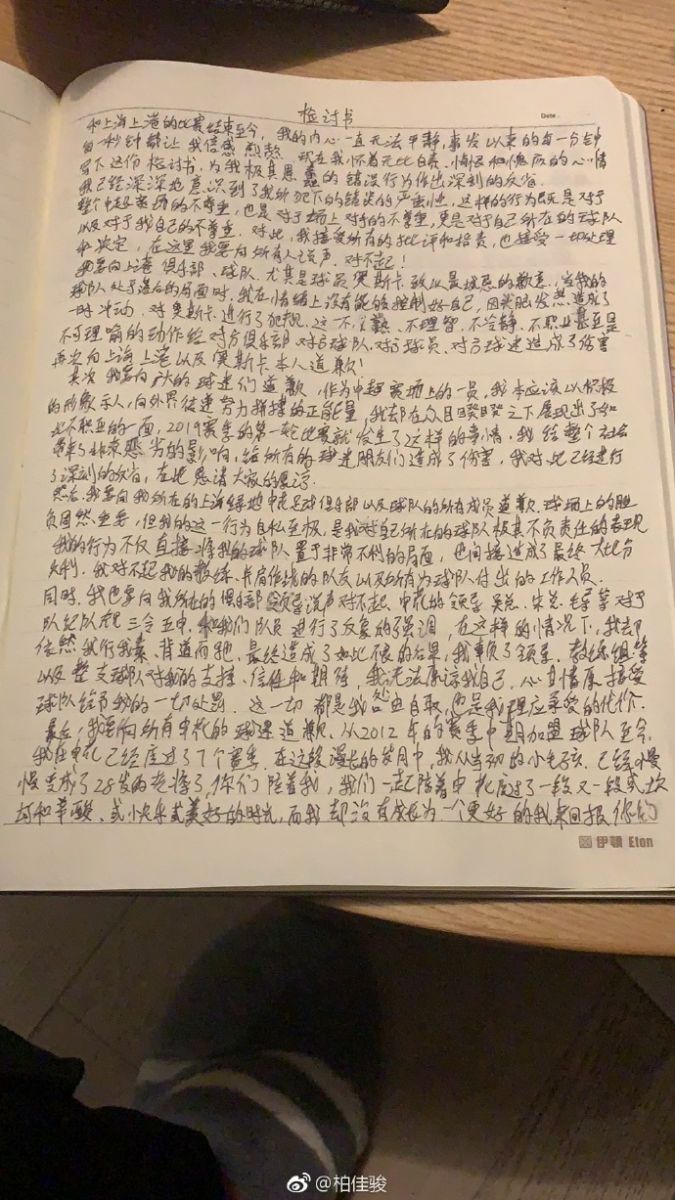 检讨书
Date
和上海上港的比赛结束至今，我的内心一直无法平静，事发以来的每一分钟
每一秒钟都让我倍感煎熬，现在我怀着无比自责、悔恨和愧疚的心情
写下这份检讨书，为我极其愚蠢的错误行为作出深刻的反省。
我已经深深地意识到了我所犯下的错误的严重性，这样的行为既是对于
整个中超赛场的不尊重，也是对于场上对手的不尊重，更是对于自己所在的球队
以及对于我自己的不尊重。对此，我接受所有的批评和指责，也接受一切处理
和决定，在这里我要向所有人说声，对不起！
我要向上港俱乐部、球队、尤其是球员奥斯卡致以最诚恳的歉意，当我的
球队处于落后的局面时，我在情绪上没有能够控制好自己，因头脑发热造成了
一时冲动，对奥斯卡进行了犯规，这一不冷静、不理智、不职业甚至是
不可理喻的动作给对方俱乐部、对方球队、对方球员、对方球迷造成了伤害
再次向上海上港以及奥斯卡本人道歉！
其次，我要向广大的球迷们道歉，作为中超赛场上的一员，我本应该以积极
的形象示人，向外界传递努力拼搏的正能量，我却在众目睽睽之下展现出了如
此不职业的一面，2019赛季的第一轮比赛就发生了这样的事情，我给整个社会
带来了非常恶劣的影响，给所有的球迷朋友们造成了伤害，我对此已经进行
了深刻的反省，在此恳请大家的原谅。
然后，我要向我所在的上海绿地申花足球俱乐部以及球队的所有成员道歉，球场上的胜
负固然重要，但我的这一行为自私至极，是我对自己所在的球队极其不负责任的表现
我的行为不仅直接将我的球队置于非常不利的局面，也间接造成了最终大比分
失利，我对不起我的教练、并肩作战的队友以及所有为球队付出的工作人员。
同时，我也要向我所在的俱乐部领导说声对不起，申花的领导吴总、朱总、毛导等对于
队纪队规三令五申，和我们队员进行了反复的强调，在这样的情况下，我却
依然我行我素，背道而驰，最终造成了如此不良的后果，我辜负了领导、教练组等
以及整支球队对我的支持、信任和期待，我无法原谅我自己，心甘情愿接受
球队给予我的一切处罚，这一切都是我咎由自取，也是我理应承受的代价。
最后，我要向所有申花的球迷道歉，从2012年的赛季中期加盟球队至今，
我在申花已经度过了7个赛季，在这段漫长的岁月中，我从当初的小毛孩，已经慢
慢变成了28岁的老将了，你们陪着我，我们一起陪着申花度过了一段又一段或坎
坷和辛酸、或快乐或美好的时光，而我却没有成长为一个更好的我来回报你们
伊顿 Eton
@柏佳骏